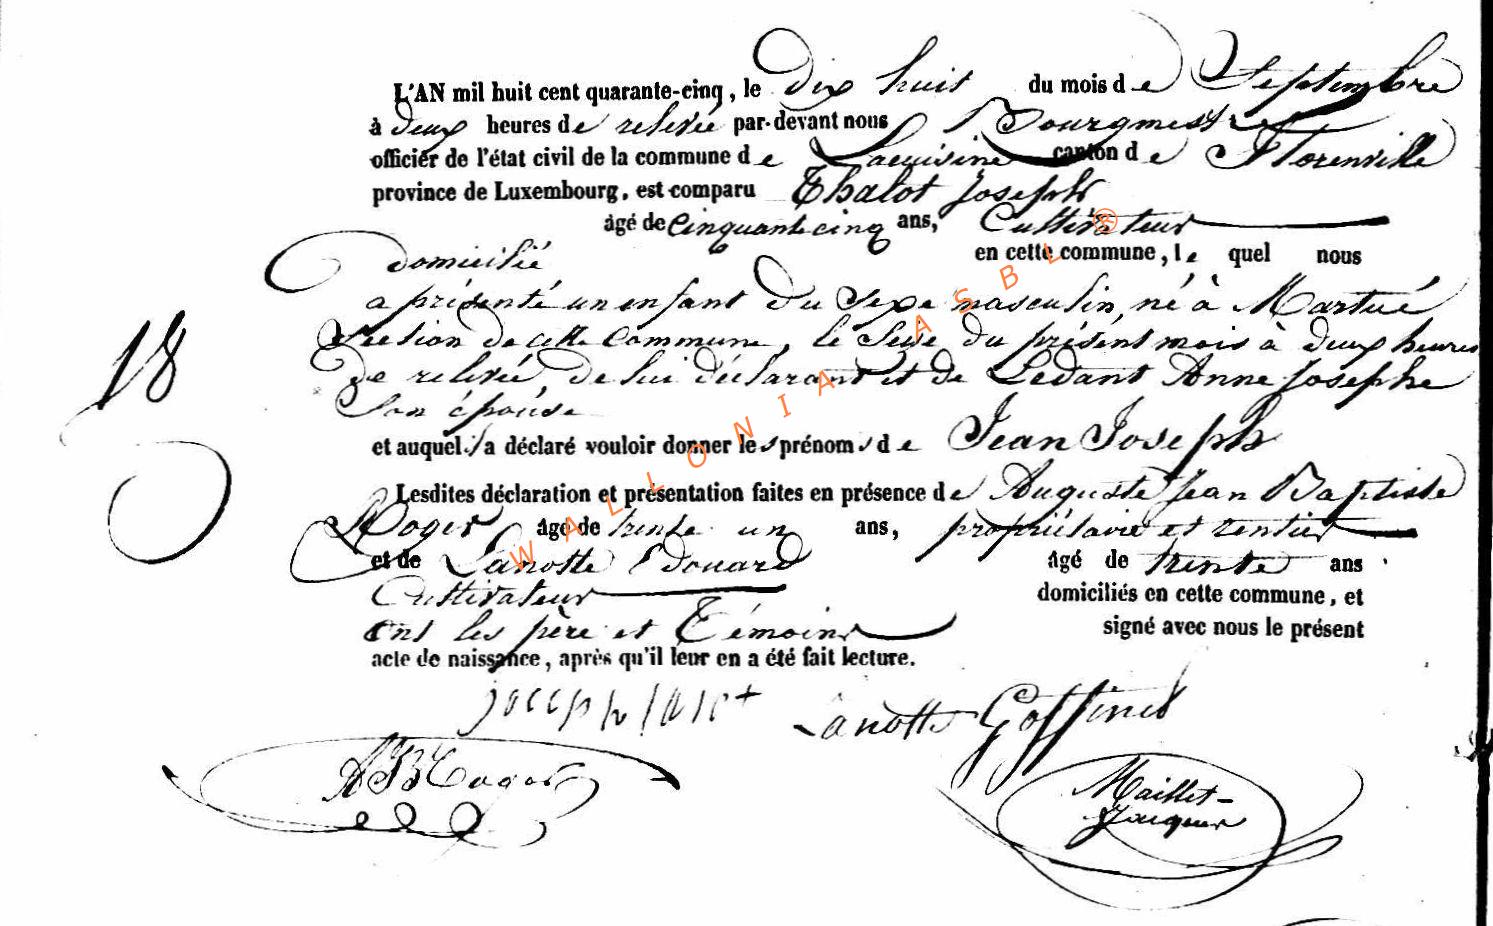 L'AN mil huit cent quarante-cinq, le dix huit du mois de Septembre
à deux heures de relevée par-devant nous Bourgmestre
officier de l'état civil de la commune de Lacuisine canton de Florenville
province de Luxembourg, est comparu Thalot Joseph
âgé de cinquante cinq ans, Cultivateur
domicilié en cette commune, le quel nous
a présenté un enfant du sexe masculin, né à Martué
section de cette commune, le seize du présent mois à deux heures
de relevée, de lui déclarant et de Ledant Anne Josephe
son épouse
18
et auquel il a déclaré vouloir donner les prénoms de Jean Joseph
Lesdites déclaration et présentation faites en présence de Auguste Jean Baptiste
Roger âgé de trente un ans, propriétaire et rentier
et de Lanotte Edouard âgé de trente ans
Cultivateur domiciliés en cette commune, et
ont les père et Témoins signé avec nous le présent
acte de naissance, après qu'il leur en a été fait lecture.
joseph
Lanotte Goffinet
Maillet-
Jacques
WALLONIA ASBL ®